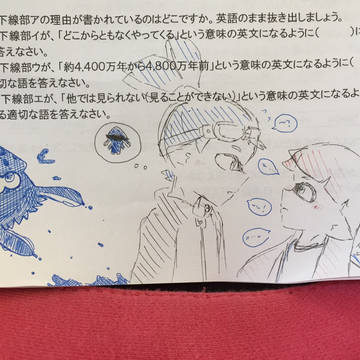 下線部アの理由が書かれているのはどこですか。英語のまま抜き出しましょう。
下線部イが、「どこからともなくやってくる」という意味の英文になるように( )に
答えなさい。
下線部ウが、「約4,400万年から4,800万年前」という意味の英文になるように(
切な語を答えなさい。
下線部エが、「他では見られない(見ることができない)」という意味の英文になるよ
る適切な語を答えなさい。